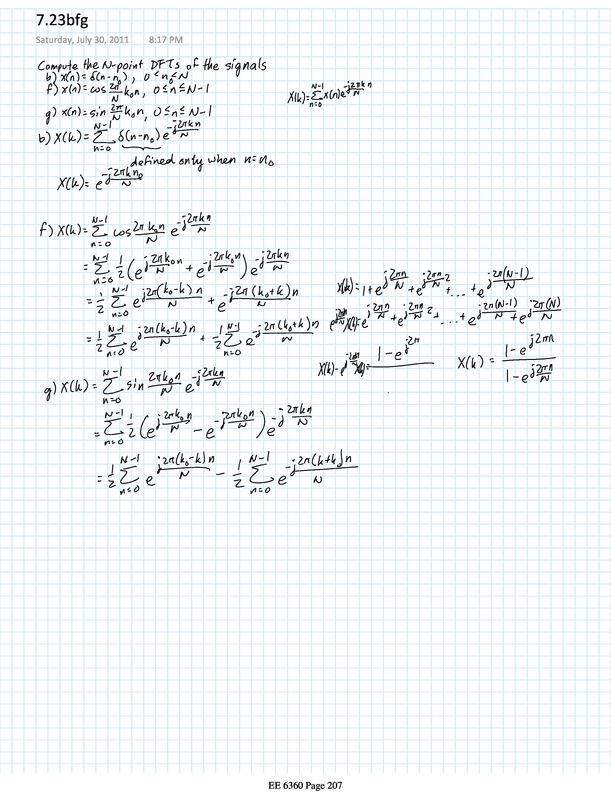 7.23bfg
Saturday, July 30, 2011 8:17 PM
Compute the N-point DFTs of the signals
b) x(n) = δ(n-n₀), 0<n₀<N
f) x(n) = cos 2π/N k₀n, 0≤n≤N-1
X(k) = Σ_{n=0}^{N-1} x(n) e^{-j2πkn/N}
g) x(n) = sin 2π/N k₀n, 0≤n≤N-1
b) X(k) = Σ_{n=0}^{N-1} δ(n-n₀) e^{-j2πkn/N}
defined only when n=n₀
X(k) = e^{-j2πkn₀/N}
f) X(k) = Σ_{n=0}^{N-1} cos 2πk₀n/N e^{-j2πkn/N}
= Σ_{n=0}^{N-1} 1/2 (e^{j2πk₀n/N} + e^{-j2πk₀n/N}) e^{-j2πkn/N}
= 1/2 Σ_{n=0}^{N-1} e^{j2π(k₀-k)n/N} + e^{-j2π(k₀+k)n/N}
= 1/2 Σ_{n=0}^{N-1} e^{j2π(k₀-k)n/N} + 1/2 Σ_{n=0}^{N-1} e^{-j2π(k₀+k)n/N}
X(k) = 1 + e^{j2πn/N} + e^{j2πn/N 2} + ... + e^{j2π(N-1)/N}
X(k) = e^{j2πn/N} + e^{j2πn/N 2} + ... + e^{j2π(N-1)/N} + e^{j2π(N)/N}
1-e^{j2π}
X(k) = 1-e^{j2πn} / 1-e^{j2πn/N}
g) X(k) = Σ_{n=0}^{N-1} sin 2πk₀n/N e^{-j2πkn/N}
= Σ_{n=0}^{N-1} 1/2 (e^{j2πk₀n/N} - e^{-j2πk₀n/N}) e^{-j2πkn/N}
= 1/2 Σ_{n=0}^{N-1} e^{j2π(k₀-k)n/N} - 1/2 Σ_{n=0}^{N-1} e^{-j2π(k+k₀)n/N}
EE 6360 Page 207